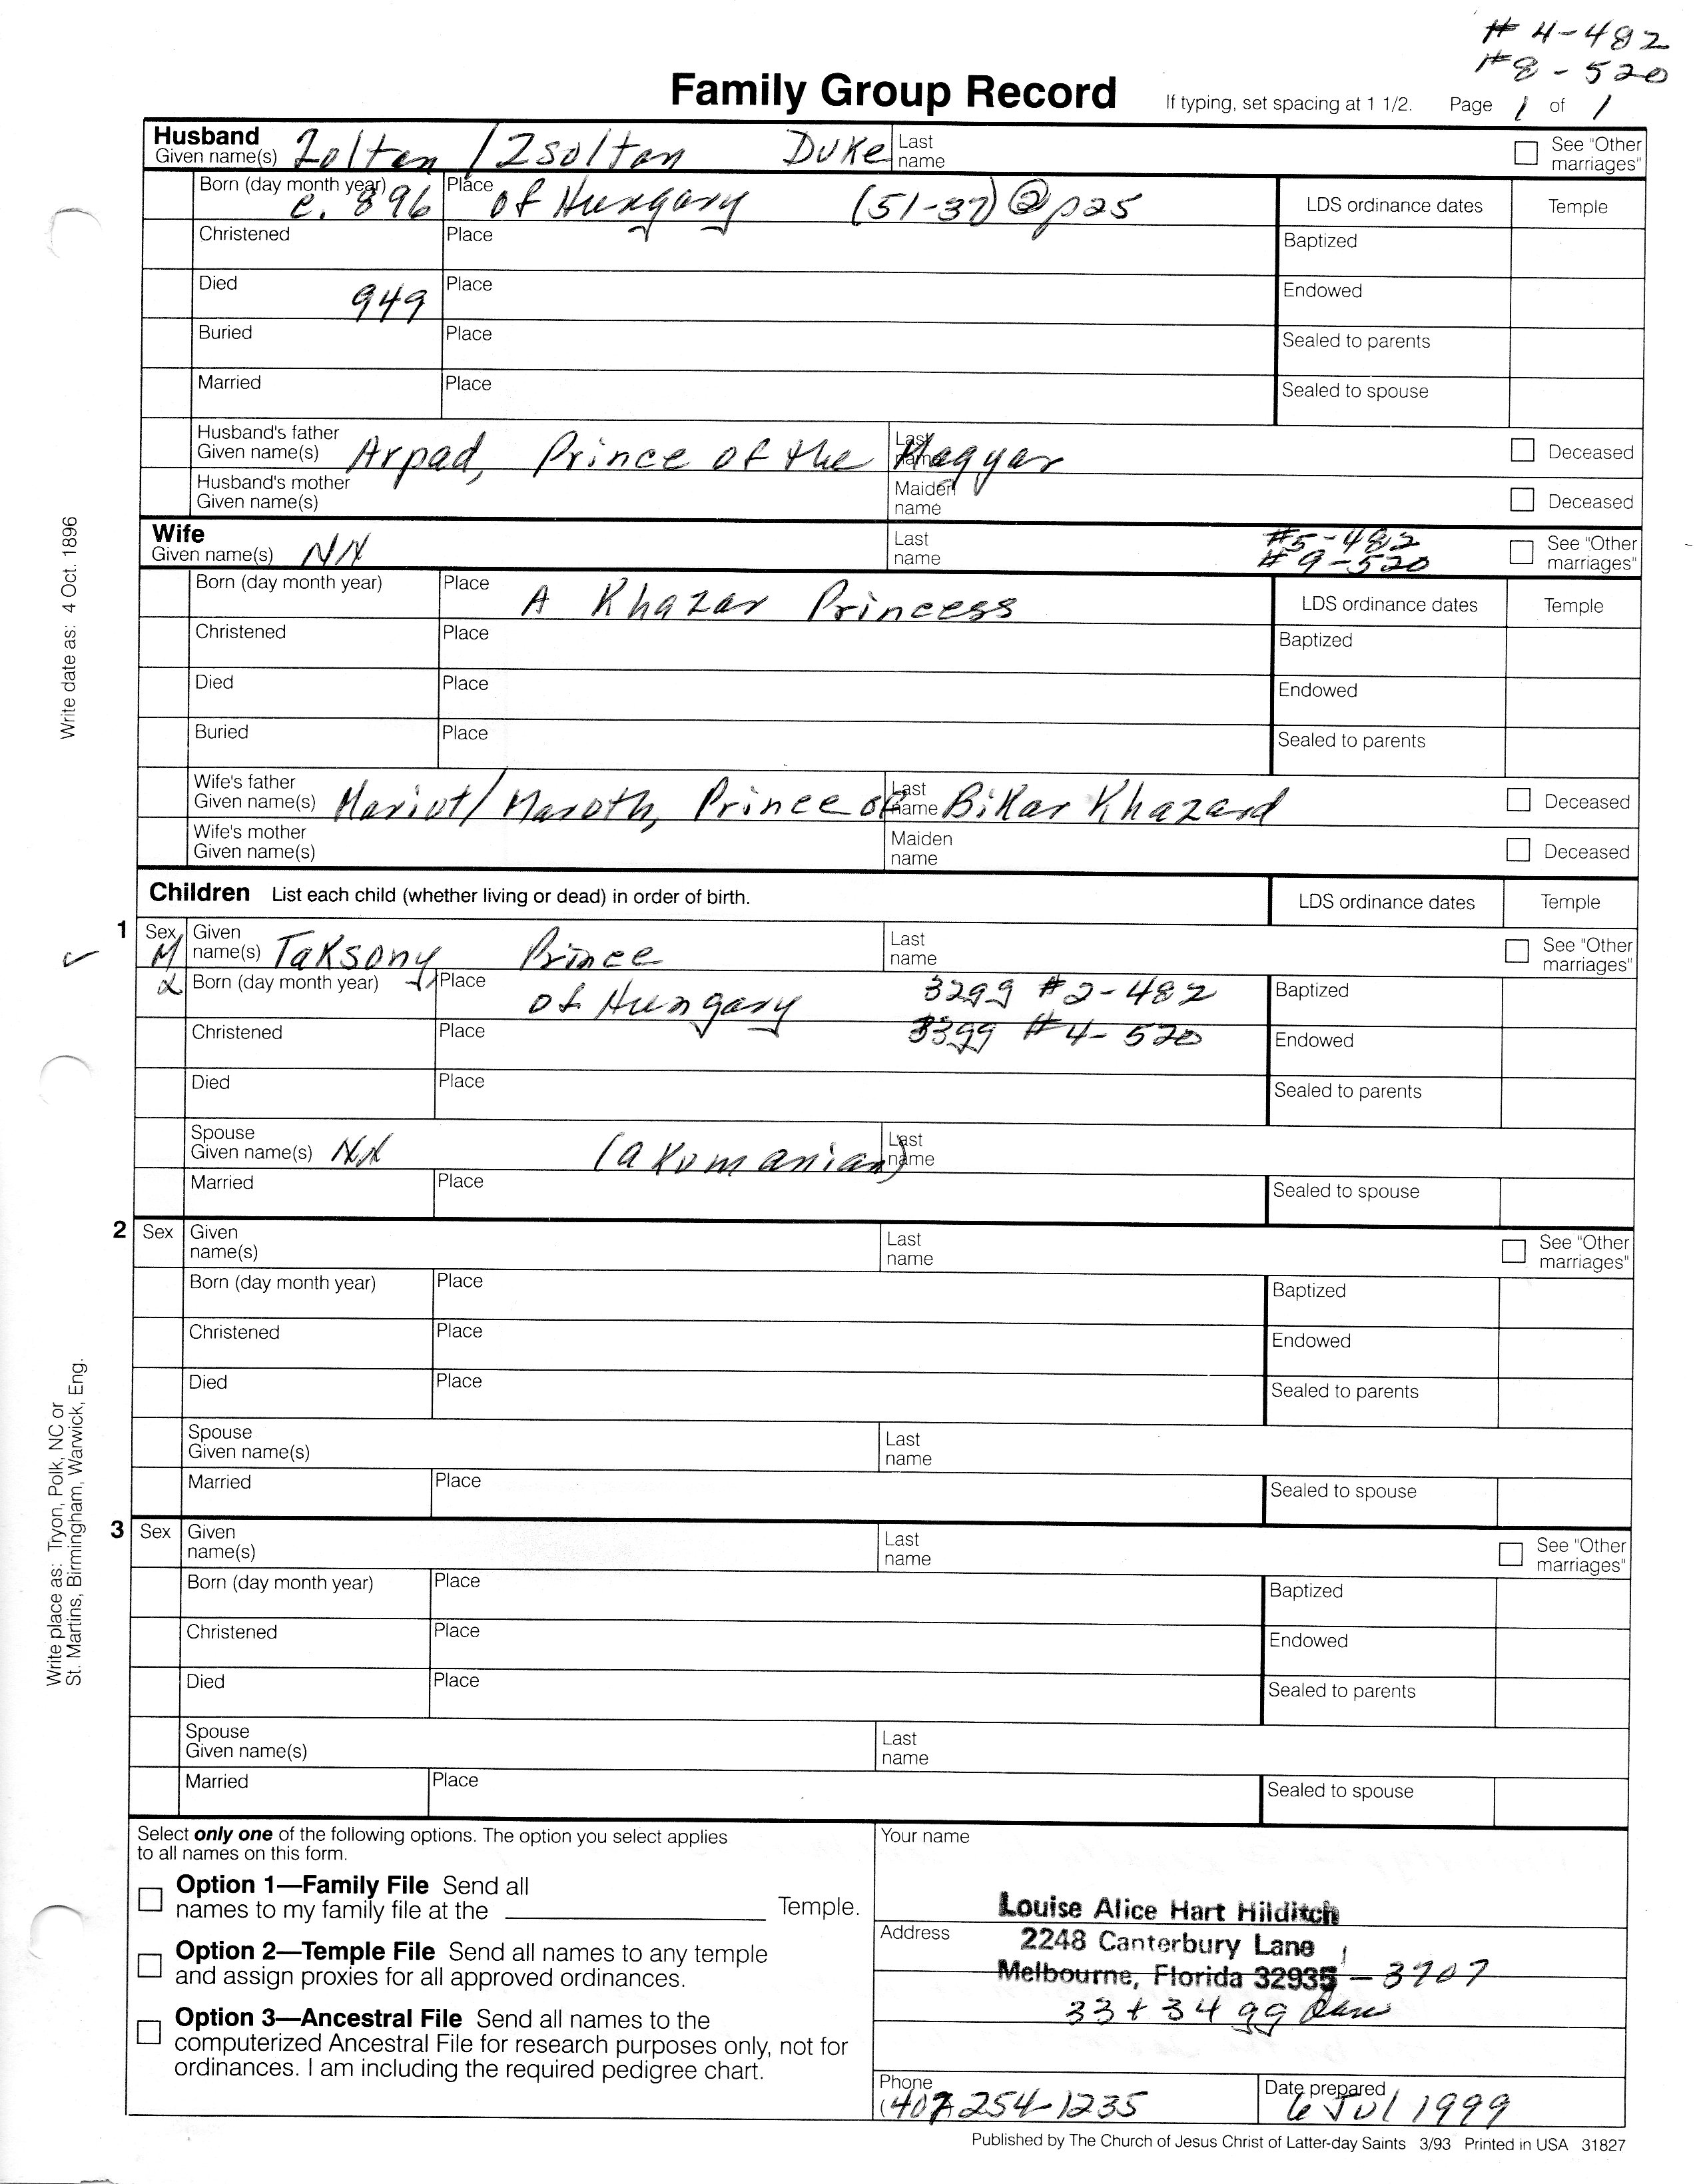 # 4-482
# 8-520
Family Group Record If typing, set spacing at 1 1/2. Page 1 of 1
Husband
Given name(s) Zoltan / Zsoltan Duke Last name See "Other marriages"
Born (day month year) c. 896 Place of Hungary (51-37) @ p25 LDS ordinance dates Temple
Christened Place Baptized
Died 949 Place Endowed
Buried Place Sealed to parents
Married Place Sealed to spouse
Husband's father Given name(s) Arpad, Prince of the Last name Magyar Deceased
Husband's mother Given name(s) Maiden name Deceased
Wife
Given name(s) NN Last name #5-482 #9-520 See "Other marriages"
Born (day month year) Place A Khazar Princess LDS ordinance dates Temple
Christened Place Baptized
Died Place Endowed
Buried Place Sealed to parents
Wife's father Given name(s) Mariot/Maroth, Prince of Last name Bihar Khazard Deceased
Wife's mother Given name(s) Maiden name Deceased
Children List each child (whether living or dead) in order of birth. LDS ordinance dates Temple
1 Sex M Given name(s) Taksony Prince Last name See "Other marriages"
Born (day month year) Place of Hungary 32gg #2-482 Baptized
Christened Place 33gg #4-520 Endowed
Died Place Sealed to parents
Spouse Given name(s) NN (a Kumanian) Last name
Married Place Sealed to spouse
2 Sex Given name(s) Last name See "Other marriages"
Born (day month year) Place Baptized
Christened Place Endowed
Died Place Sealed to parents
Spouse Given name(s) Last name
Married Place Sealed to spouse
3 Sex Given name(s) Last name See "Other marriages"
Born (day month year) Place Baptized
Christened Place Endowed
Died Place Sealed to parents
Spouse Given name(s) Last name
Married Place Sealed to spouse
Select only one of the following options. The option you select applies
to all names on this form.
Option 1—Family File Send all
names to my family file at the Temple.
Option 2—Temple File Send all names to any temple
and assign proxies for all approved ordinances.
Option 3—Ancestral File Send all names to the
computerized Ancestral File for research purposes only, not for
ordinances. I am including the required pedigree chart.
Your name
Louise Alice Hart Hilditch
Address 2248 Canterbury Lane
Melbourne, Florida 32935-3707
33 + 34 gg
Phone (407 254-1235 Date prepared 6 Jul 1999
Published by The Church of Jesus Christ of Latter-day Saints 3/93 Printed in USA 31827
Write date as: 4 Oct. 1896
Write place as: Tryon, Polk, NC or
St. Martins, Birmingham, Warwick, Eng.